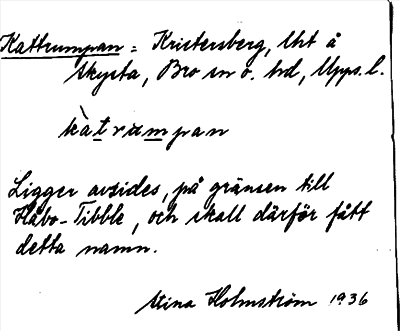 Kattrumpan = Kristersberg, lht å
Skysta, Bro sn o. hd, Upps. l.
kàtrumpan
Ligger avsides, på gränsen till
Håbo-Tibble, och skall därför fått
detta namn.
Stina Holmström 1936